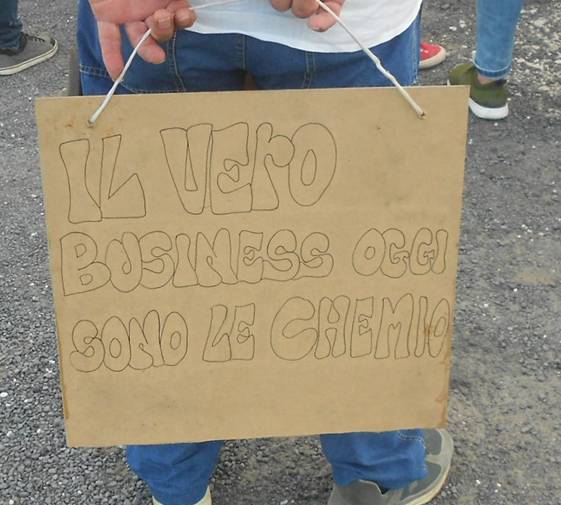 IL VErO
BUSINESS OGGI
SONO LE CHEMIO